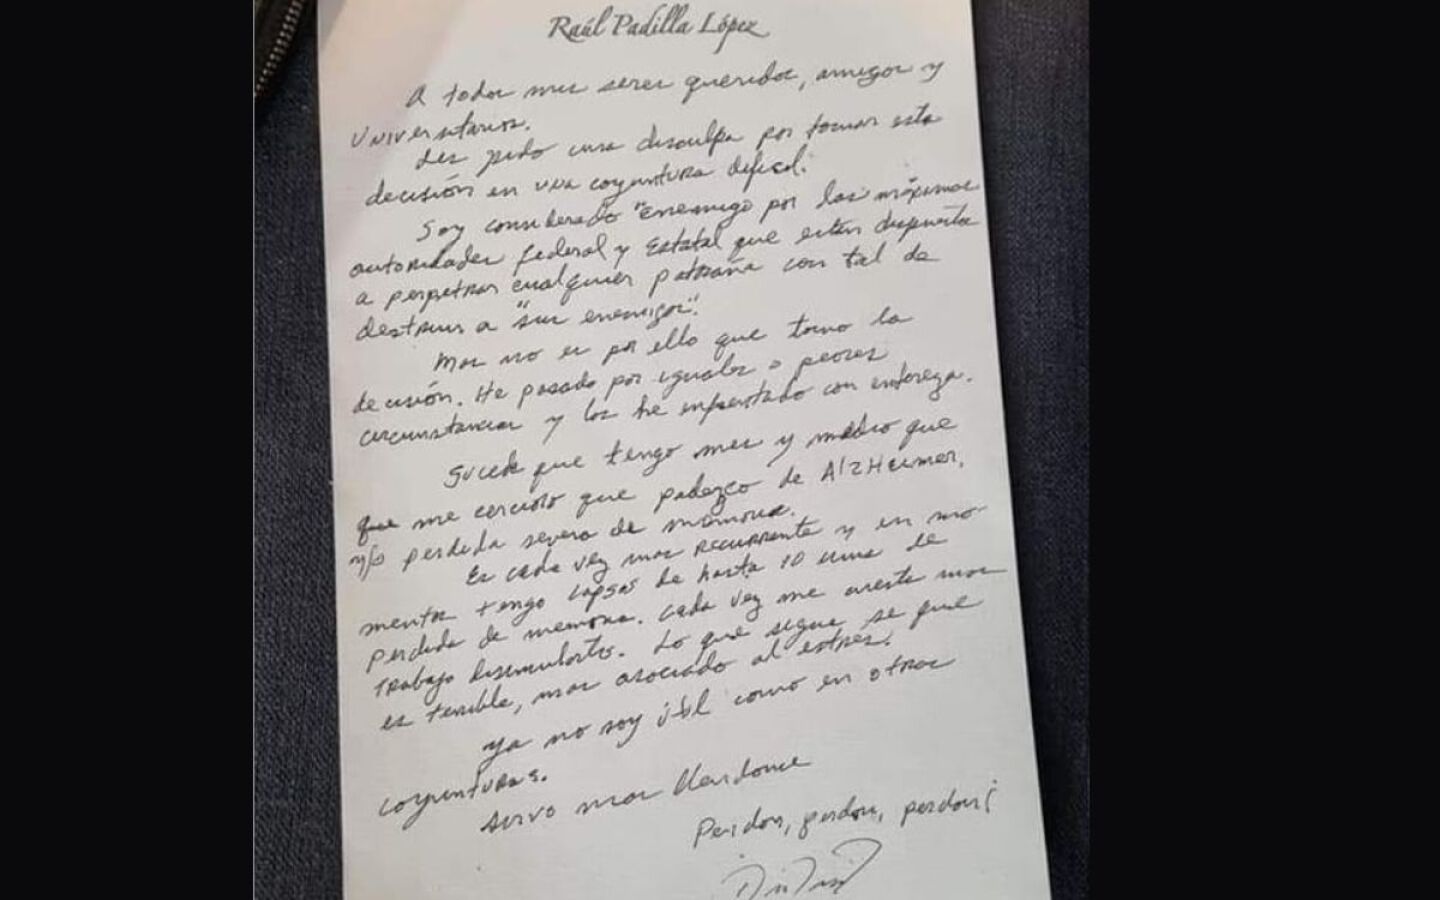 Raúl Padilla López
A todos mis seres queridos, amigos y
universitarios.
Les pido una disculpa por tomar esta
decisión en una coyuntura difícil.
Soy considerado "enemigo por las máximas
autoridades federal y Estatal que están dispuestas
a perpetrar cualquier patraña con tal de
destruir a "sus enemigos".
Mas no es por ello que tomo la
decisión. He pasado por iguales o peores
circunstancias y las he enfrentado con entereza.
Sucede que tengo mes y medio que
que me cercioro que padezco de AlzHeimer,
y/o perdida severa de memoria.
Es cada vez mas recurrente y en mo-
mentos tengo lapsos de hasta 10 mins de
perdida de memoria. Cada vez me cuesta mas
trabajo disimularlo. Lo que sigue se que
es terrible, mas asociado al estres.
Ya no soy útil como en otras
coyunturas.
Sirvo mas
Perdon, perdon, perdon!